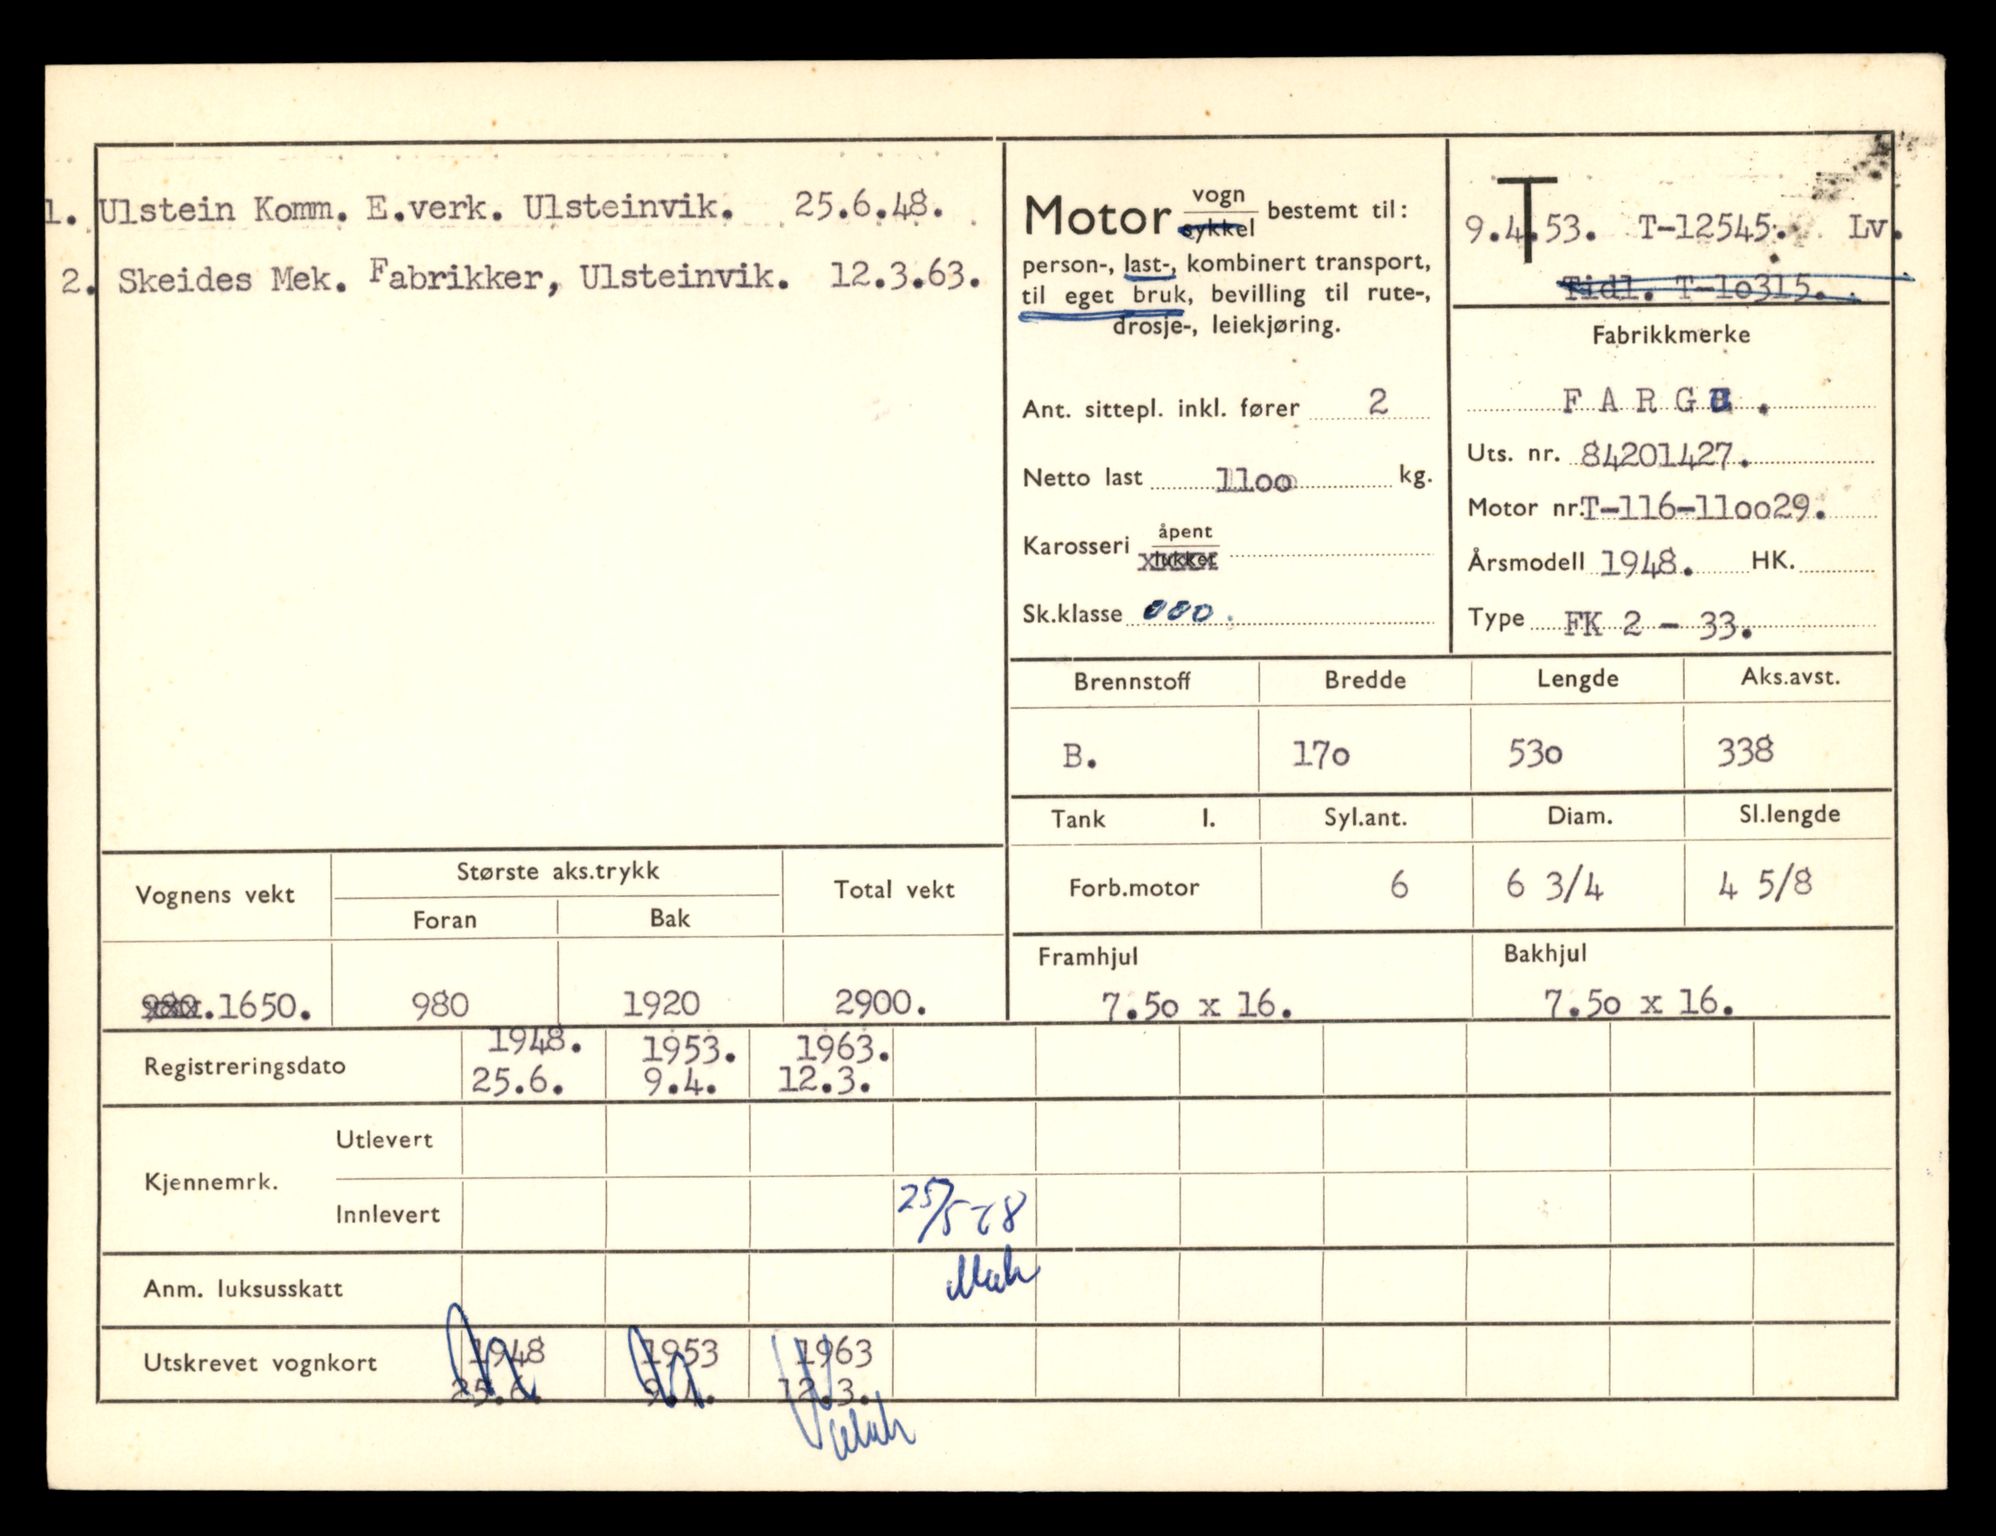 1. Ulstein Komm. E.verk. Ulsteinvik. 25.6.48.
2. Skeides Mek. Fabrikker, Ulsteinvik. 12.3.63.
Motor vogn sykkel bestemt til:
person-, last-, kombinert transport,
til eget bruk, bevilling til rute-,
drosje-, leiekjøring.
Ant. sittepl. inkl. fører 2
Netto last 1100 kg.
Karosseri åpent lukket
Sk.klasse 000.
T
9.4.53. T-12545. Lv.
Tidl. T-10315.
Fabrikkmerke
FARGO.
Uts. nr. 84201427.
Motor nr. T-116-110029.
Årsmodell 1948. HK.
Type FK 2 - 33.
Brennstoff Bredde Lengde Aks.avst.
B. 170 530 338
Tank l. Syl.ant. Diam. Sl.lengde
Forb.motor 6 6 3/4 4 5/8
Framhjul Bakhjul
7.50 x 16. 7.50 x 16.
Vognens vekt Største aks.trykk Total vekt
Foran Bak
980.1650. 980 1920 2900.
Registreringsdato 1948. 1953. 1963.
25.6. 9.4. 12.3.
Kjennemrk. Utlevert
Innlevert 25/5-68
Anm. luksusskatt
Utskrevet vognkort 1948 1953 1963
25.6. 9.4. 12.3.